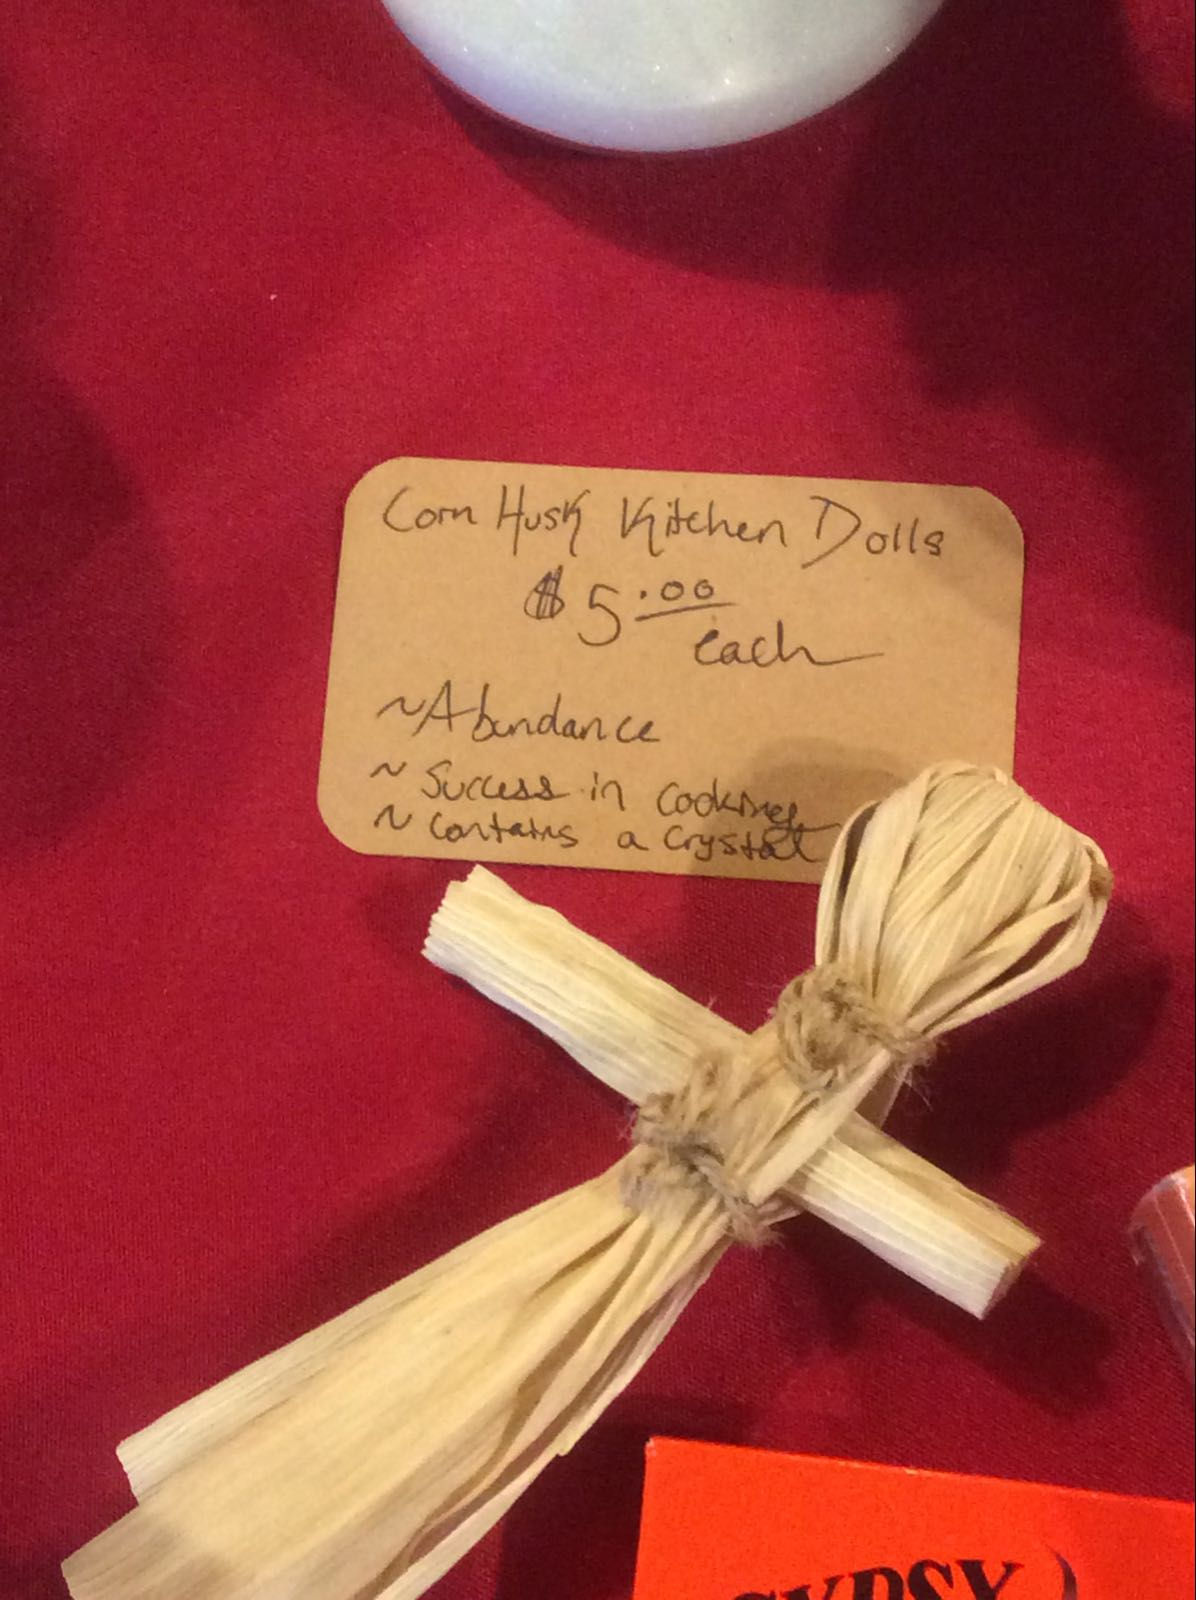 Corn Husk Kitchen Dolls
$5.00
each
~Abundance
~ Success in cooking
~ contains a crystal
GYPSY